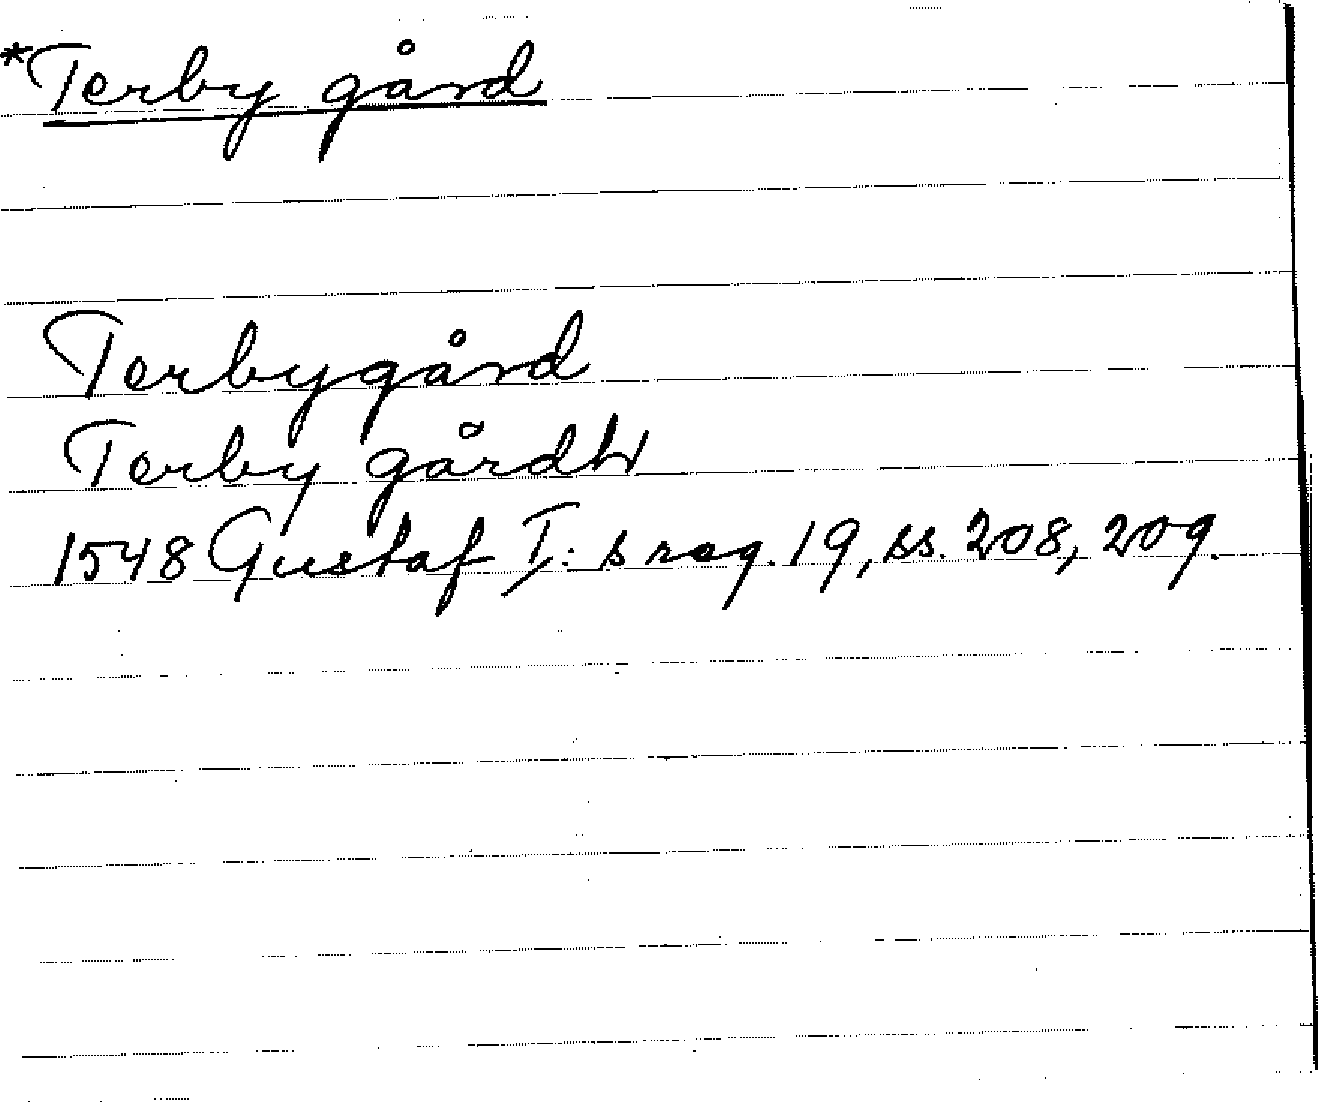 *Terby gård
Terbygård
Terby gårdh
1548 Gustaf I:s reg. 19, ss. 208, 209.